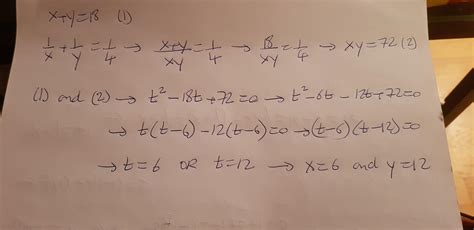 x+y=18 (1)
1/x + 1/y = 1/4 → (x+y)/xy = 1/4 → 18/xy = 1/4 → xy=72 (2)
(1) and (2) → t²-18t+72=0 → t²-6t-12t+72=0
→ t(t-6)-12(t-6)=0 → (t-6)(t-12)=0
→ t=6 OR t=12 → x=6 and y=12